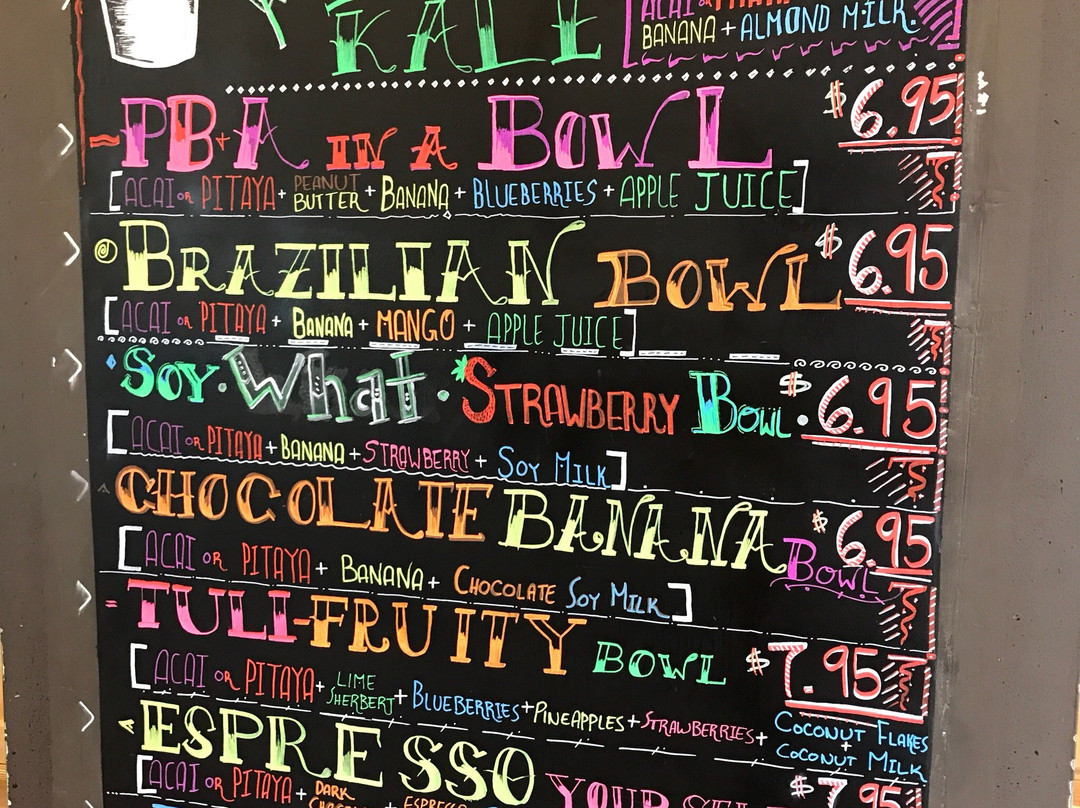 KALE
ACAI OR PITAYA
BANANA + ALMOND MILK.
PB+A IN A BOWL $6.95
[ACAI OR PITAYA + PEANUT BUTTER + BANANA + BLUEBERRIES + APPLE JUICE]
BRAZILIAN BOWL $6.95
[ACAI OR PITAYA + BANANA + MANGO + APPLE JUICE]
SOY · What · STRAWBERRY BOWL. $6.95
[ACAI OR PITAYA + BANANA + STRAWBERRY + SOY MILK]
CHOCOLATE BANANA BOWL $6.95
[ACAI OR PITAYA + BANANA + CHOCOLATE SOY MILK]
TULI-FRUITY BOWL $7.95
[ACAI OR PITAYA + LIME SHERBERT + BLUEBERRIES + PINEAPPLES + STRAWBERRIES + COCONUT FLAKES + COCONUT MILK
ESPRESSO YOUR $7.95
[ACAI OR PITAYA + DARK ESPRESSO